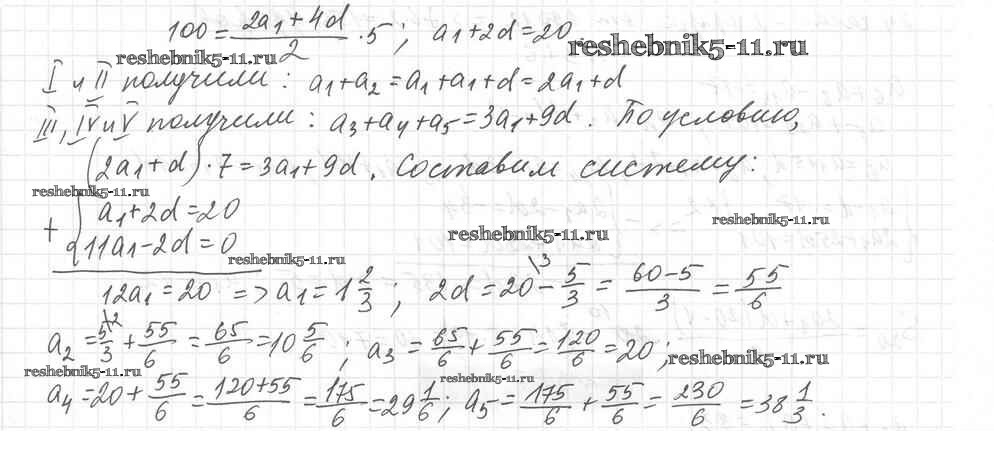 100 = (2a₁ + 4d)/2 · 5; a₁ + 2d = 20
reshebnik5-11.ru
reshebnik5-11.ru
I и II получили: a₁ + a₂ = a₁ + a₁ + d = 2a₁ + d
III, IV и V получили: a₃ + a₄ + a₅ = 3a₁ + 9d. По условию,
(2a₁ + d) · 7 = 3a₁ + 9d. Составим систему:
reshebnik5-11.ru
+ { a₁ + 2d = 20
reshebnik5-11.ru
11a₁ - 2d = 0
reshebnik5-11.ru
reshebnik5-11.ru
12a₁ = 20 => a₁ = 1 2/3; 2d = 20\3 - 5/3 = (60 - 5)/3 = 55/6
a₂ = 5\2/3 + 55/6 = 65/6 = 10 5/6; a₃ = 65/6 + 55/6 = 120/6 = 20;
reshebnik5-11.ru
reshebnik5-11.ru
reshebnik5-11.ru
a₄ = 20 + 55/6 = (120 + 55)/6 = 175/6 = 29 1/6; a₅ = 175/6 + 55/6 = 230/6 = 38 1/3.